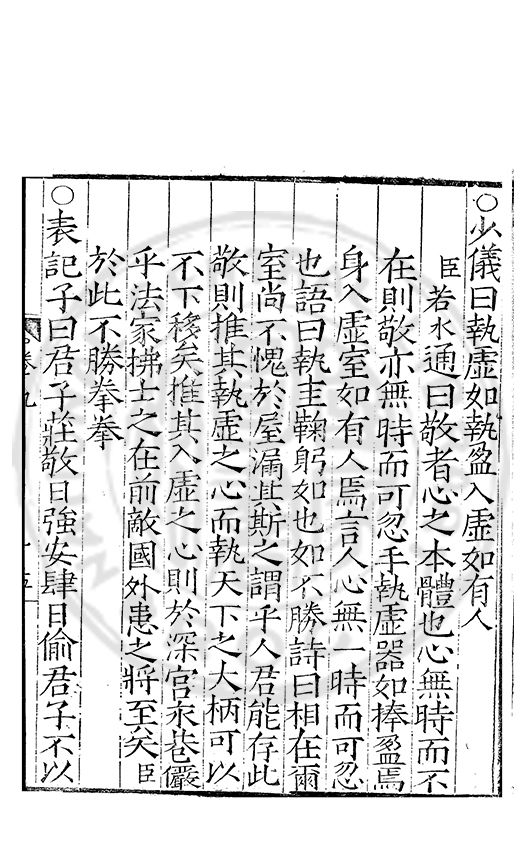 ○少儀曰執虛如執盈入虛如有人
臣若水通曰敬者心之本體也心無時而不
在則敬亦無時而可忽手執虛器如捧盈焉
身入虛室如有人焉言人心無一時而可忽
也語曰執圭鞠躬如也如不勝詩曰相在爾
室尚不愧於屋漏其斯之謂乎人君能存此
敬則推其執虛之心而執天下之大柄可以
不下移矣推其入虛之心則於深宮永巷儼
乎法家拂士之在前敵國外患之將至矣臣
於此不勝拳拳
○表記子曰君子莊敬日強安肆日偷君子不以
卷九
十五